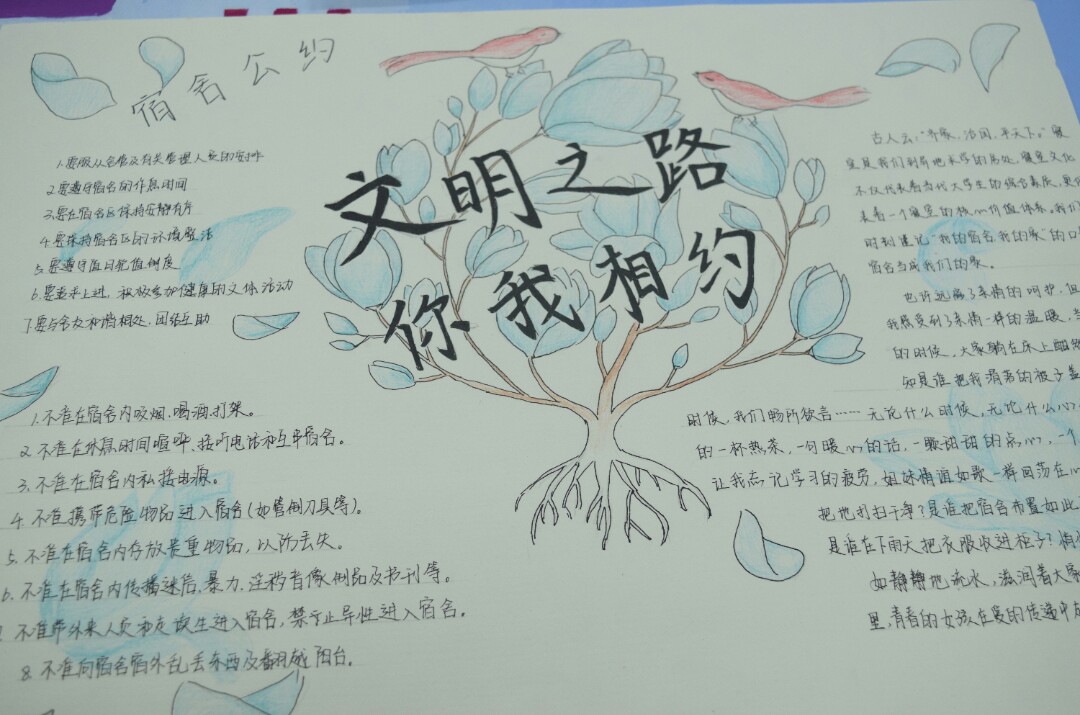 宿舍公约
文明之路
你我相约
1.要服从宿管及有关管理人员的安排
2.要遵守宿舍的作息时间
3.要在宿舍区保持安静有序
4.要保持宿舍区的环境整洁
5.要遵守值日轮值制度
6.要要求上进，积极参加健康的文体活动
7.要与舍友和谐相处，团结互助
1.不准在宿舍内吸烟、喝酒、打架。
2.不准在休息时间喧哗、接听电话和互串宿舍。
3.不准在宿舍内私接电源。
4.不准携带危险物品进入宿舍(如管制刀具等)。
5.不准在宿舍内存放贵重物品，以防丢失。
6.不准在宿舍内传播迷信、暴力、淫秽音像制品及书刊等。
不准带外来人员和走读生进入宿舍，禁止异性进入宿舍。
8.不准向宿舍窗外乱丢东西及翻越阳台。
古人云:"齐家，治国，平天下。"寝
室是我们到异地求学的居处，寝室文化
不仅代表着当代大学生的综合素质，更
表着一个寝室的核心价值体系，我们
时刻谨记"我的宿舍我的家"的口
宿舍当成我们的家。
也许远离了亲情的呵护，但
我感受到了亲情一样的温暖，
的时候，大家躺在床上
知是谁把我滑落的被子盖
时候，我们畅所欲言……无论什么时候，无论什么
的一杯热茶，一句暖心的话，一颗甜甜的点心，一个
让我忘记学习的疲劳，姐妹情谊如歌一样回荡在心
把地打扫干净？是谁把宿舍布置如此
是谁在下雨天把衣服收进柜子？
如静静地流水，滋润着大家
里，青春的女孩在爱的传递中